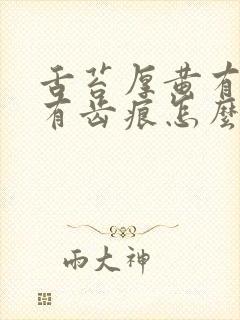 舌苔厚黄有
有齿痕怎麼
雨大神